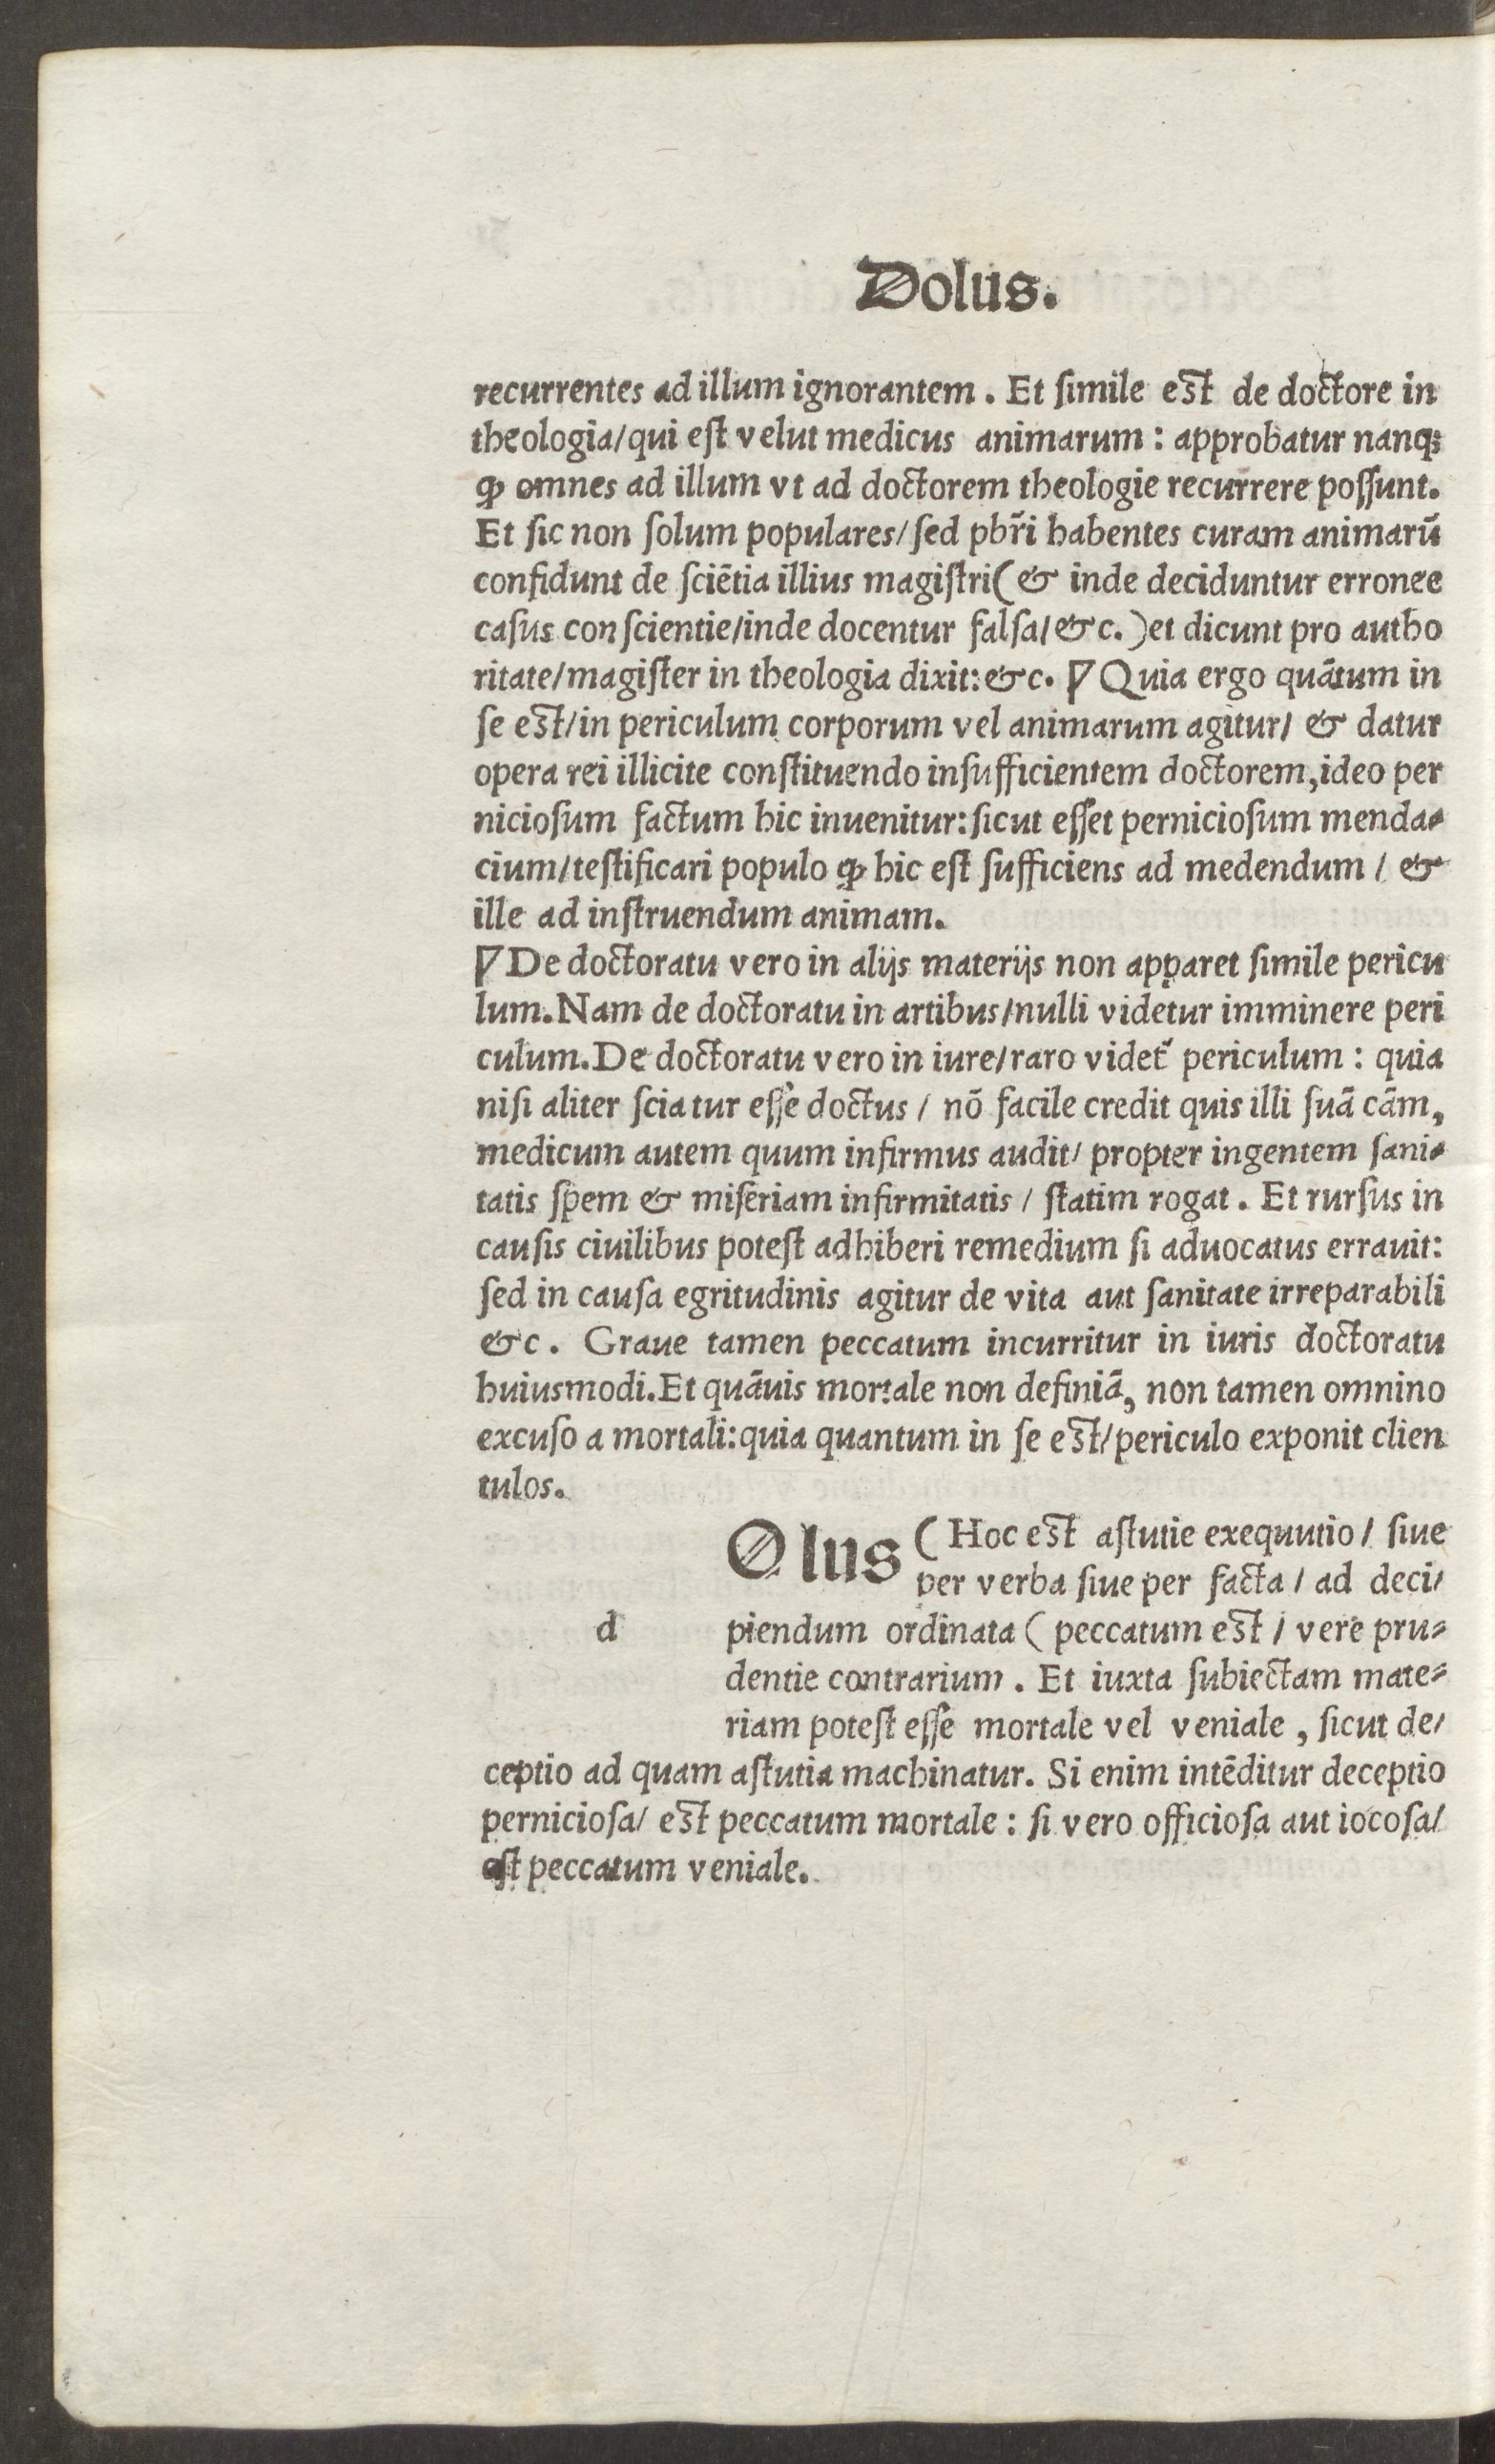 Dolus.
recurrentes ad illum ignorantem. Et ſimile est de doctore in
theologia/qui eſt velut medicus animarum: approbatur nanqꝫ
ꝙ omnes ad illum vt ad doctorem theologie recurrere poſſunt.
Et ſic non ſolum populares/ſed pbr̃i habentes curam animarũ
confidunt de ſciẽtia illius magiſtri(& inde deciduntur erronee
caſus conſcientie/inde docentur falſa/&c.)et dicunt pro autho
ritate/magiſter in theologia dixit:&c. ¶ Quia ergo quãtum in
ſe est/in periculum corporum vel animarum agitur/ & datur
opera rei illicite conſtituendo inſufficientem doctorem,ideo per
nicioſum factum hic inuenitur:ſicut eſſet pernicioſum menda⸗
cium/teſtificari populo ꝙ hic eſt ſufficiens ad medendum / &
ille ad inſtruendum animam.
¶ De doctoratu vero in alijs materijs non apparet ſimile pericu
lum.Nam de doctoratu in artibus/nulli videtur imminere peri
culum.De doctoratu vero in iure/raro videt᷑ periculum: quia
niſi aliter ſciatur eſſe doctus / nõ facile credit quis illi ſuã cãm,
medicum autem quum infirmus audit/ propter ingentem ſani⸗
tatis ſpem & miſeriam infirmitatis / ſtatim rogat. Et rurſus in
cauſis ciuilibus poteſt adhiberi remedium ſi aduocatus errauit:
ſed in cauſa egritudinis agitur de vita aut ſanitate irreparabili
&c. Graue tamen peccatum incurritur in iuris doctoratu
huiusmodi.Et quãuis mortale non definiã, non tamen omnino
excuſo a mortali:quia quantum in ſe est/periculo exponit clien
tulos.
Olus (Hoc est aſtutie exequutio/ ſiue
per verba ſiue per facta / ad deci/
d piendum ordinata ( peccatum est / vere pru⸗
dentie contrarium. Et iuxta ſubiectam mate⸗
riam poteſt eſſe mortale vel veniale, ſicut de/
ceptio ad quam aſtutia machinatur. Si enim intẽditur deceptio
pernicioſa/ est peccatum mortale: ſi vero officioſa aut iocoſa/
eſt peccatum veniale.